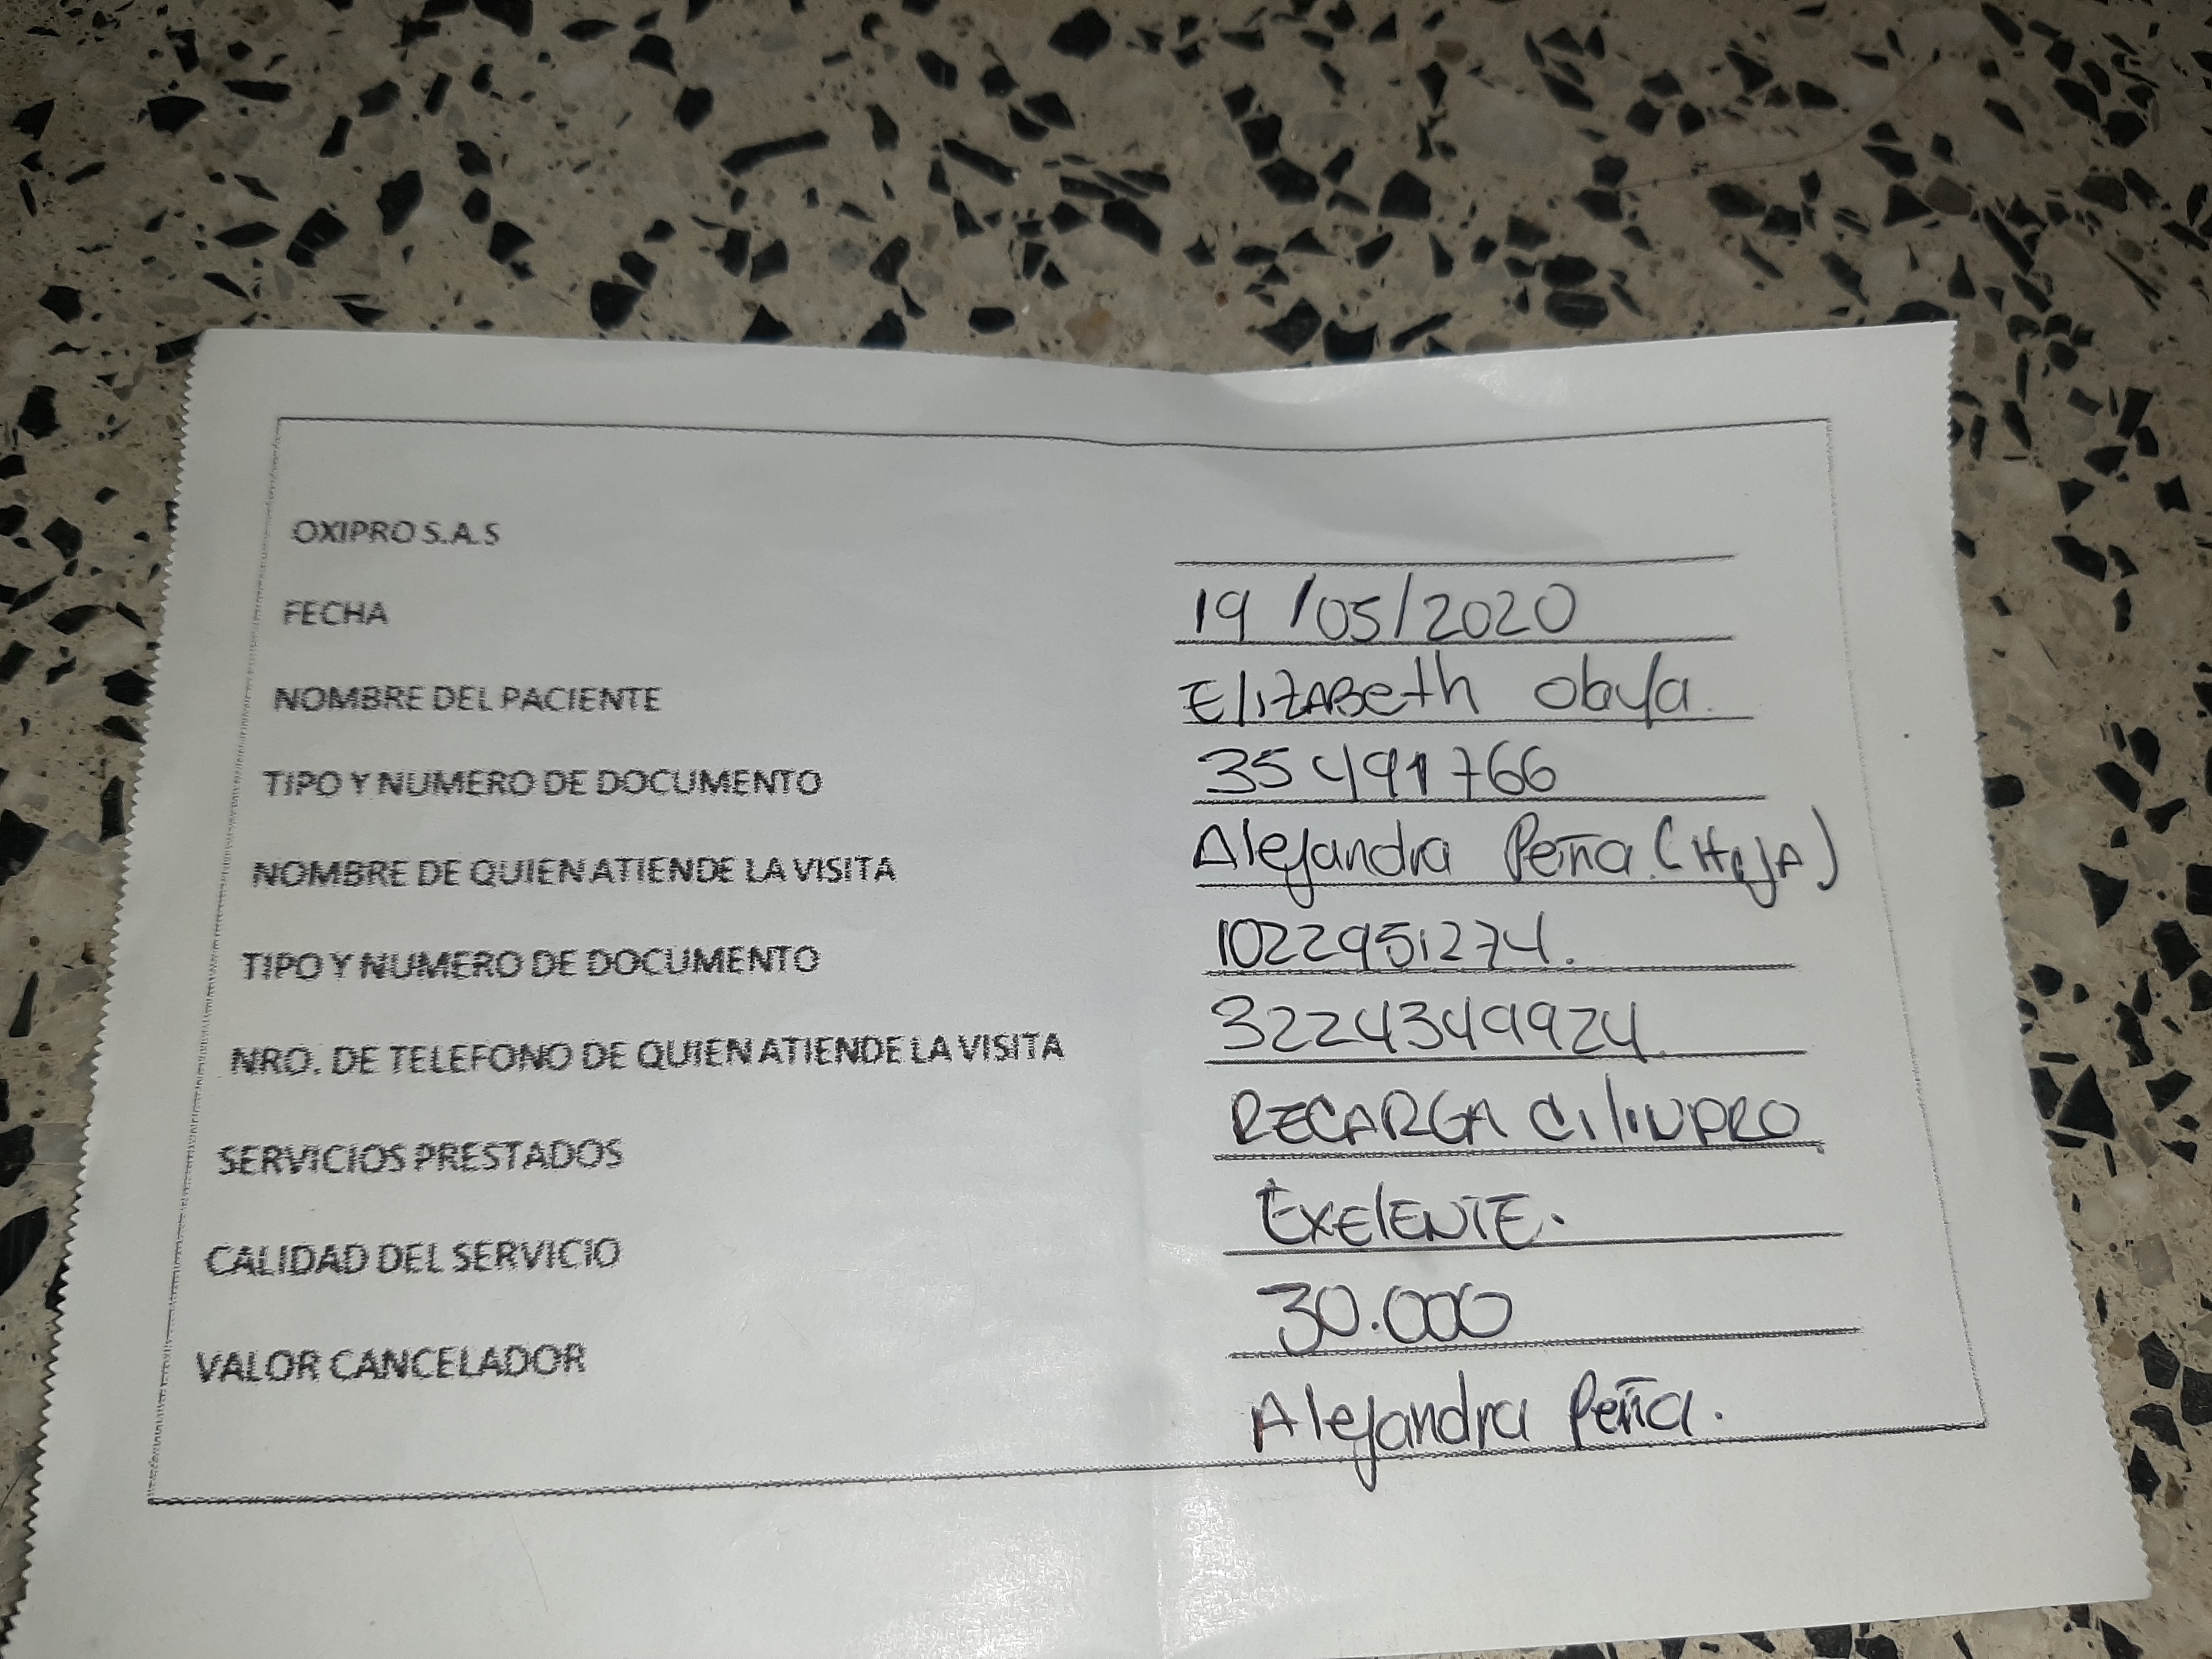 OXIPRO S.A.S
FECHA 19/05/2020
NOMBRE DEL PACIENTE ElizABeth Olaya.
TIPO Y NUMERO DE DOCUMENTO 35491766
NOMBRE DE QUIEN ATIENDE LA VISITA Alejandra Peña (HijA)
TIPO Y NUMERO DE DOCUMENTO 1022951274.
NRO. DE TELEFONO DE QUIEN ATIENDE LA VISITA 3224349924.
SERVICIOS PRESTADOS RECARGA CiliNDRO
CALIDAD DEL SERVICIO ExElENTE.
VALOR CANCELADOR 30.000
Alejandra Peña.